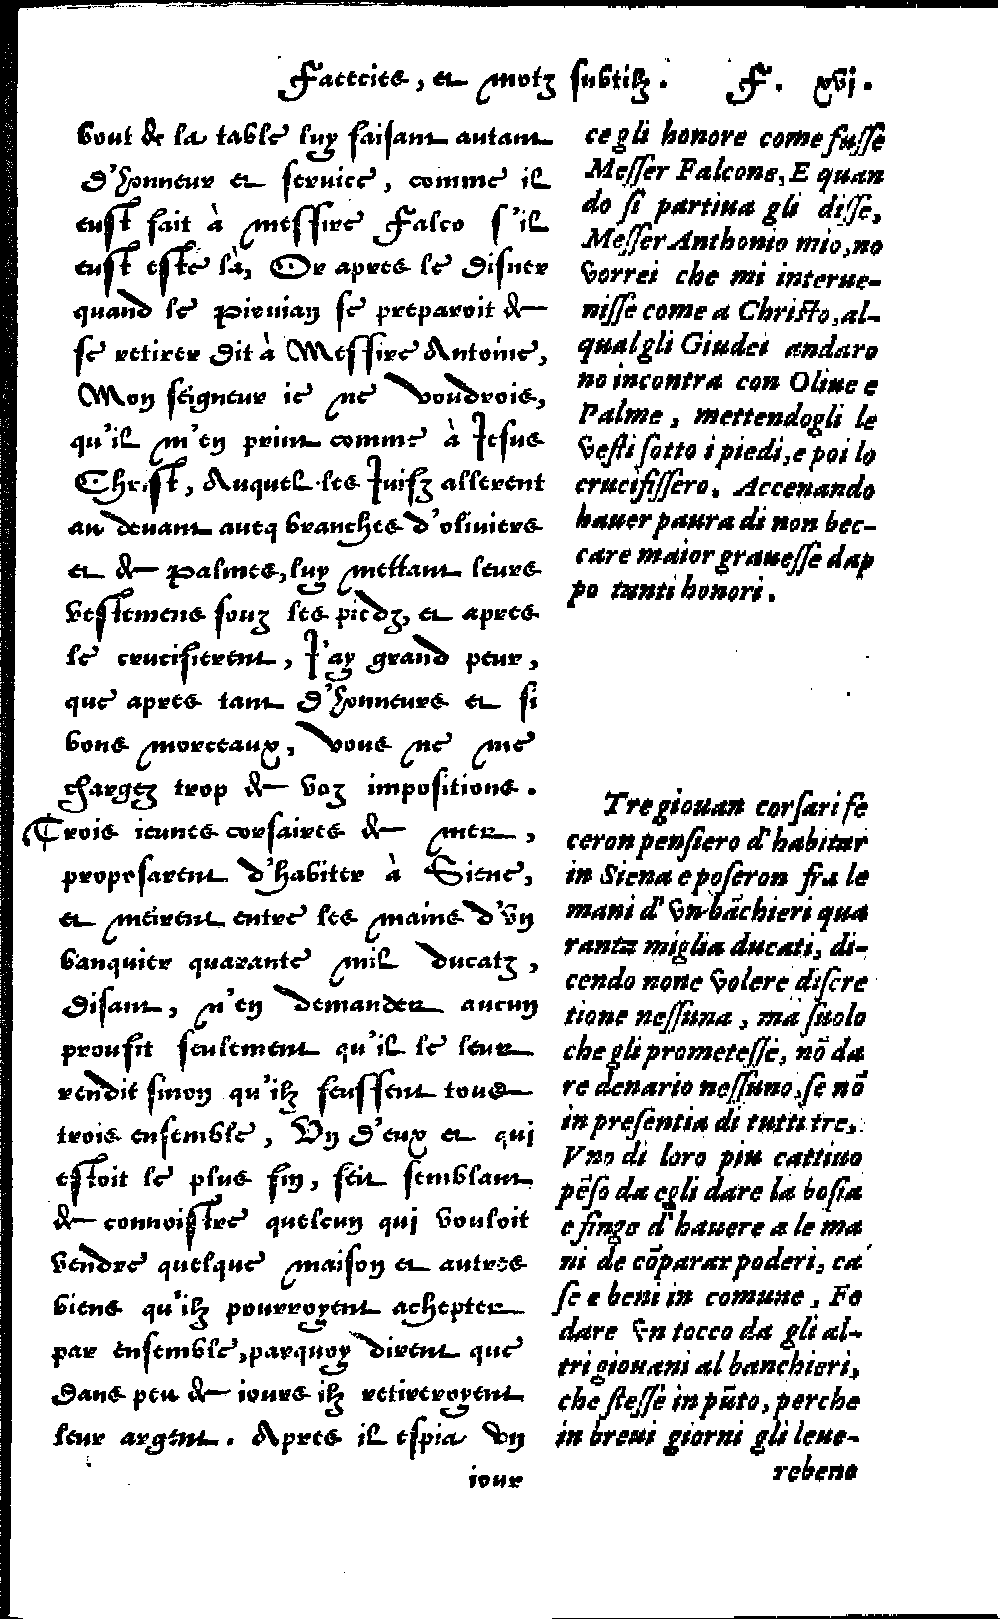 Faecties, et motz subtilz. F. xvj.
bout de la table luy faisant autant
d'honneur et service, comme il
eust fait à messire Falco s'il
eust este là, Or apres le disner
quand le Piovian se preparoit de
se retirer dit à Messire Antoine,
Mon seigneur ie ne voudrois,
qu'il m'en print comme à Jesus
Christ, Auquel les Juifz allerent
au devant aueq branches d'oliviers
et de Palmes, luy mettant leurs
vestemens souz les piedz, et apres
le crucifierent, J'ay grand peur,
que apres tant d'honneurs et si
bons morceaux, vous ne me
chargez trop de voz impositions.
Trois ieunes corsaires de mer,
proposarent d'habiter à Siene,
et meirent entre les mains d'vn
banquier quarante mil ducatz,
disant, n'en demander aucun
proufit seulement qu'il le leur
rendit sinon qu'ilz feussent tous
trois ensemble, Vn d'eux et qui
estoit le plus fin, feit semblant
de connoistre quelcun qui vouloit
vendre quelque maison et autres
biens qu'ilz pourroyent achepter
par ensemble, parquoy dirent que
dans peu de iours ilz retireroyent
leur argent. Apres il espia vn
iour
ce gli honore come fusse
Messer Falcone, E quan
do si partiua gli disse,
Messer Anthonio mio, no
vorrei che mi interue-
nisse come a Christo, al-
qual gli Giudei andaro
no incontra con Oliue e
Palme, mettendogli le
vesti sotto i piedi, e poi lo
crucifissero. Accenando
hauer paura di non bec-
care maior grauesse dap
po tanti honori.
Tre giouan corsari fe
ceron pensiero d'habitar
in Siena e poseron fra le
mani d'vn bãchieri qua
ranta miglia ducati, di-
cendo none volere discre
tione nessuna, ma suolo
che gli prometesse, nõ da
re denario nessuno, se nõ
in presentia di tutti tre.
Vno di loro piu cattiuo
pẽso da egli dare la bosia
e fingo d'hauere a le ma
ni de cõparar poderi, ca
se e beni in comune, Fe
dare vn tocco da gli al-
tri giouani al banchieri,
che stesse in pũto, perche
in breui giorni gli leue-
rebeno